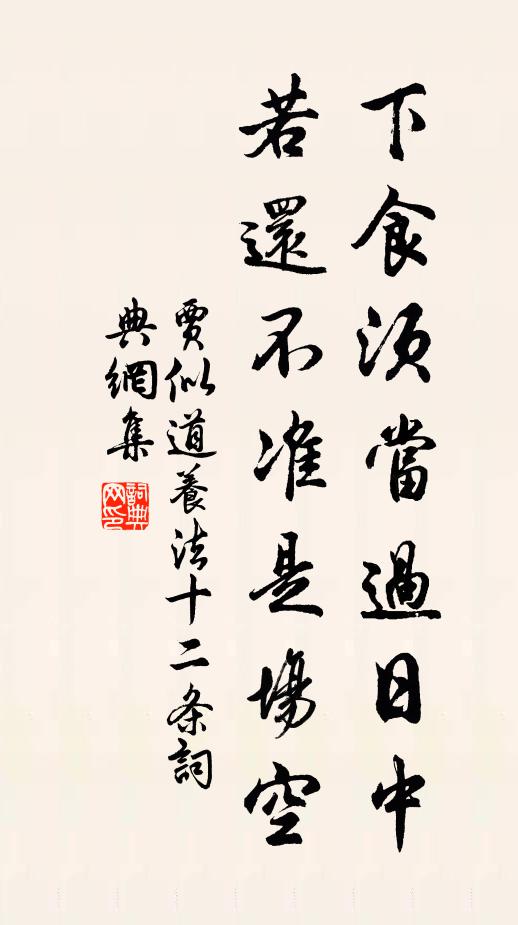 下食須當過日中
若還不准是場空
賈似道養法十二条詞
典網集
詞典
网印